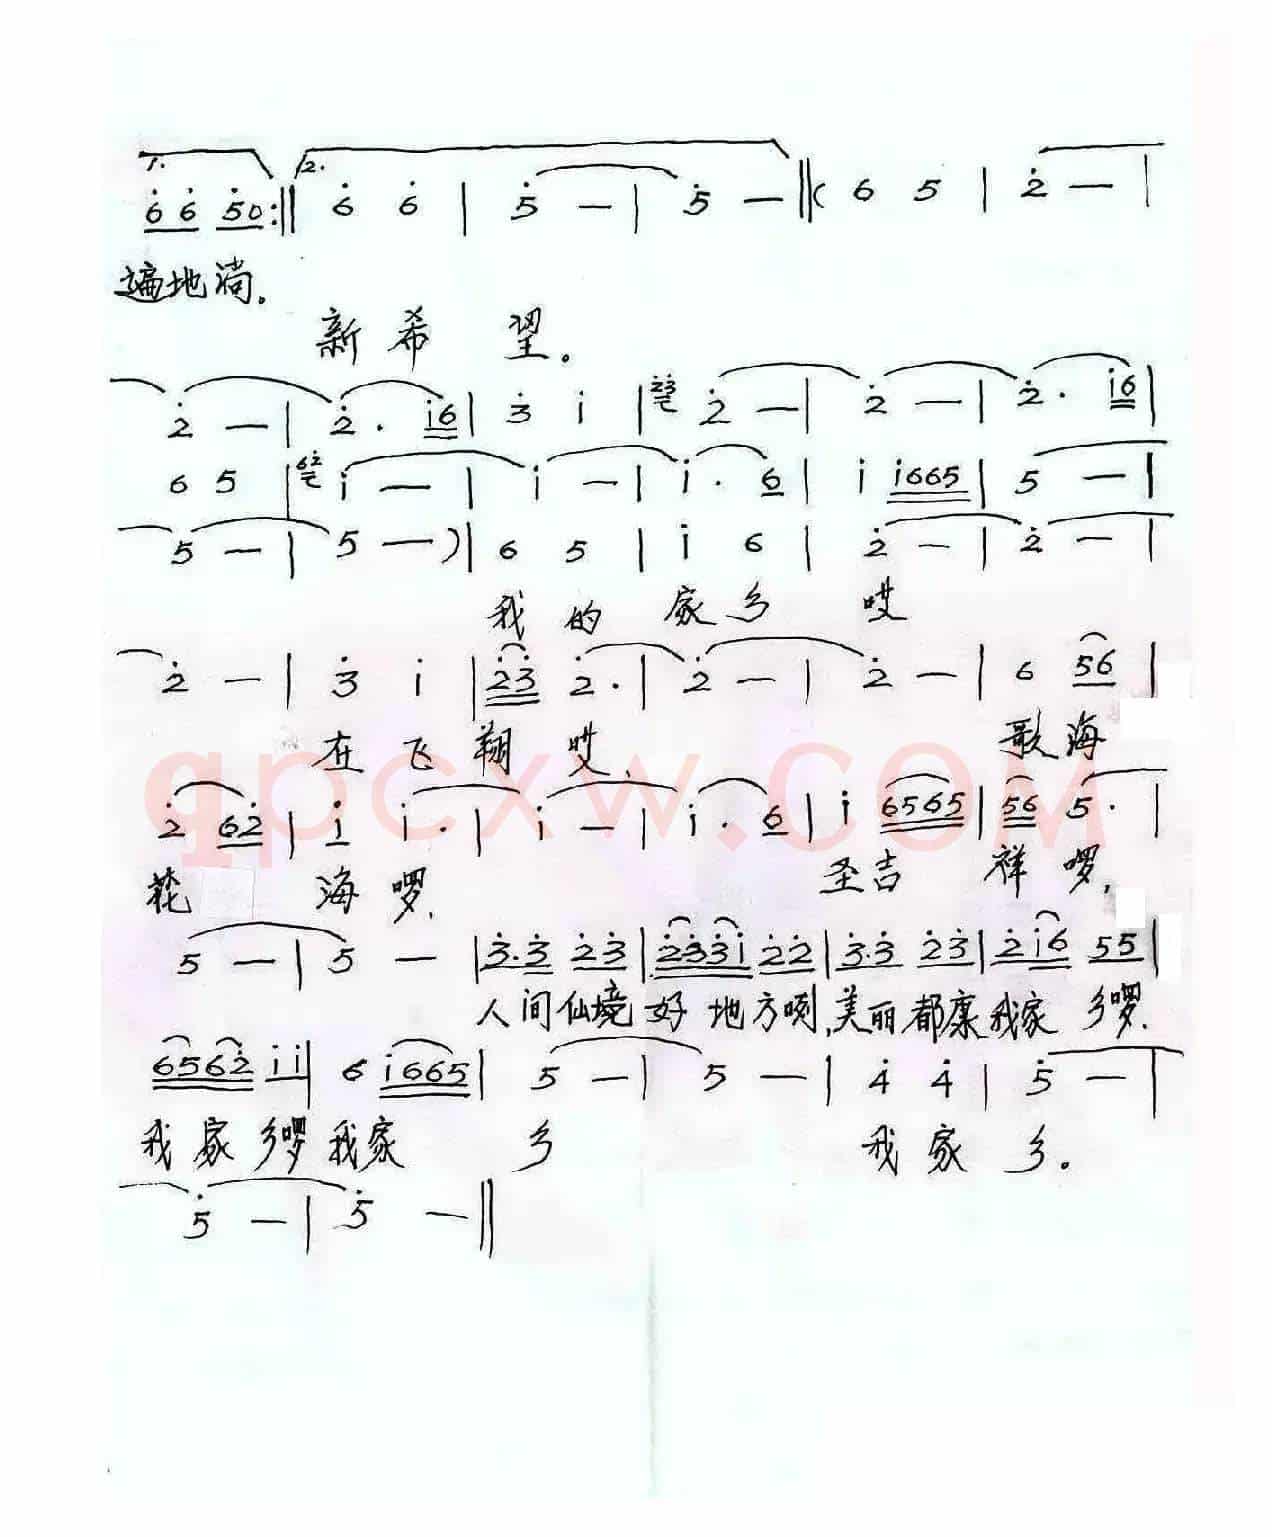 1. 6̇ 6̇ 5̇0 :‖ 2. 6̇ 6̇ | 5̇ — | 5̇ — ‖( 6 5 | 2̇ — |
遍地淌。
新希望。
2̇ — | 2̇ · i̇6 | 3̇ i̇ | 2̇3̇ 2̇ — | 2̇ — | 2̇ · i̇6 |
6 5 | 62̇ i̇ — | i̇ — | i̇ · 6 | i̇ i̇665 | 5 — |
5 — | 5 — ) | 6 5 | i̇ 6 | 2̇ — | 2̇ — |
我的家乡哎
2̇ — | 3̇ i̇ | 2̇3̇ 2̇ · | 2̇ — | 2̇ — | 6 56 |
在飞翔哎、歌海
qpcxw.com
2̇ 62̇ | i̇ i̇ · | i̇ — | i̇ · 6 | i̇ 6565 | 56 5 · |
花海啰、圣吉祥啰,
5 — | 5 — | 3̇·3̇ 2̇3̇ | 2̇3̇3̇i̇ 2̇2̇ | 3̇·3̇ 2̇3̇ | 2̇i̇6 55 |
人间仙境好地方咧,美丽都康我家乡啰、
6562̇ i̇i̇ | 6 i̇665 | 5 — | 5 — | 4̇ 4̇ | 5̇ — |
我家乡啰我家乡我家乡。
5̇ — | 5̇ — ‖